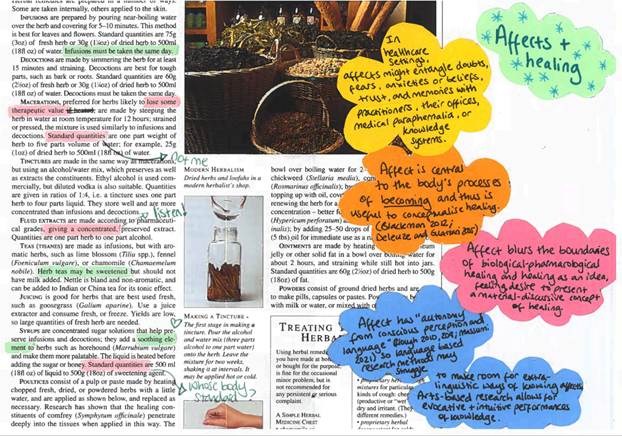 Some are taken internally, others applied to the skin.
INFUSIONS are prepared by pouring near-boiling water
over the herb and covering for 5–10 minutes. This method
is best for leaves and flowers. Standard quantities are 75g
(3oz) of fresh herb or 30g (1¼oz) of dried herb to 500ml
(18fl oz) of water. Infusions must be taken the same day.
DECOCTIONS are made by simmering the herb for at least
15 minutes and straining. Decoctions are best for tough
parts, such as bark or roots. Standard quantities are 60g
(2½oz) of fresh herb or 30g (1¼oz) of dried herb to 500ml
(18fl oz) of water. Decoctions must be taken the same day.
MACERATIONS, preferred for herbs likely to lose some
therapeutic value if heated, are made by steeping the
herb in water at room temperature for 12 hours; strained
or pressed, the mixture is used similarly to infusions and
decoctions. Standard quantities are one part weight of
herb to five parts volume of water; for example, 25g
(1oz) of dried herb to 500ml (18fl oz) of water.
not me
TINCTURES are made in the same way as macerations,
but using an alcohol/water mix, which preserves as well
as extracts the constituents. Ethyl alcohol is used com-
mercially, but diluted vodka is also suitable. Quantities
are given in ratios of 1:4, i.e. a tincture uses one part
herb to four parts liquid. They store well and are more
concentrated than infusions and decoctions.
listen!
FLUID EXTRACTS are made according to pharmaceuti-
cal grades, giving a concentrated, preserved extract.
Quantities are one part herb to one part alcohol.
TEAS (TISANES) are made as infusions, but with aro-
matic herbs, such as lime blossom (Tilia spp.), fennel
(Foeniculum vulgare), or chamomile (Chamaemelum
nobile). Herb teas may be sweetened but should not
have milk added. Nettle is bland and non-aromatic, and
can be added to Indian or China tea for its tonic effect.
JUICING is good for herbs that are best used fresh,
such as goosegrass (Galium aparine). Use a juice
extractor and consume fresh, or freeze. Yields are low,
so large quantities of fresh herb are needed.
SYRUPS are concentrated sugar solutions that help pre-
serve infusions and decoctions; they add a soothing ele-
ment to herbs such as horehound (Marrubium vulgare)
and make them more palatable. The liquid is heated before
adding the sugar or honey. Standard quantities are 500 ml
(18fl oz) of liquid to 500g (18oz) of sweetening agent.
whose body standard
POULTICES consist of a pulp or paste made by heating
chopped fresh, dried, or powdered herbs with a little
water, and are applied as shown below, and replaced as
necessary. Research has shown that the healing consti-
tuents of comfrey (Symphytum officinale) penetrate
deeply into the tissues when applied in this way. The
MODERN HERBALISM
Dried herbs and loofahs in a
modern herbalist's shop.
MAKING A TINCTURE
The first stage in making a
tincture. Pour the alcohol
and water mix (three parts
alcohol to one part water)
onto the herb. Leave the
mixture for two weeks,
shaking it at intervals. It
may be applied hot or cold.
bowl over boiling water for 2-
chickweed (Stellaria media), com
(Rosmarinus officinalis);
topping up with oil, cov
renewing the herb for a
concentration – better f
(Hypericum perforatum)
by adding 25–50 drops of
(5 fl oz) oil for immediate use as a
OINTMENTS are made by heating
jelly or other solid fat in a bowl over boiling water for
about 2 hours, and straining while still hot into jars.
Standard quantities are 60g (2½oz) of dried herb to 500g
(18oz) of fat.
POWDERS consist of ground dried herbs and are
to make pills, capsules or pastes. Powder
with milk or water, or mixed with
TREATING
HERBA
Using herbal remedies
you have made at home
or bought for the purpose
is fine for the occasional
minor problem, but is
not recommended for
any persistent or serious
complaint.
A SIMPLE HERBAL
MEDICINE CHEST
proprietary herbal
remedies for particular
kinds of cough: chesty
(productive or "wet"),
dry and irritant. (They
different remedies.)
Affects +
healing
In
healthcare
settings,
affects might entangle doubts,
fears, anxieties or beliefs,
trust, and memories with
practitioners, their offices,
medical paraphernalia, or
knowledge
systems.
Affect is central
to the body's processes
of becoming and thus is
useful to conceptualise healing.
(Blackman 2012;
Deleuze and Guattari
Affect blurs the boundaries
of biological-pharmacological
healing and healing as an idea,
feeling desire to present
a material-discursive concept
of healing.
Affect has "autonomy
from conscious perception and
language" (Clough 2010, 209; Massumi
2021) so language based
research methods may
struggle
to make room for extra-
linguistic ways of knowing affects.
Arts-based research allows for
evocative + intuitive performances
of knowledge.